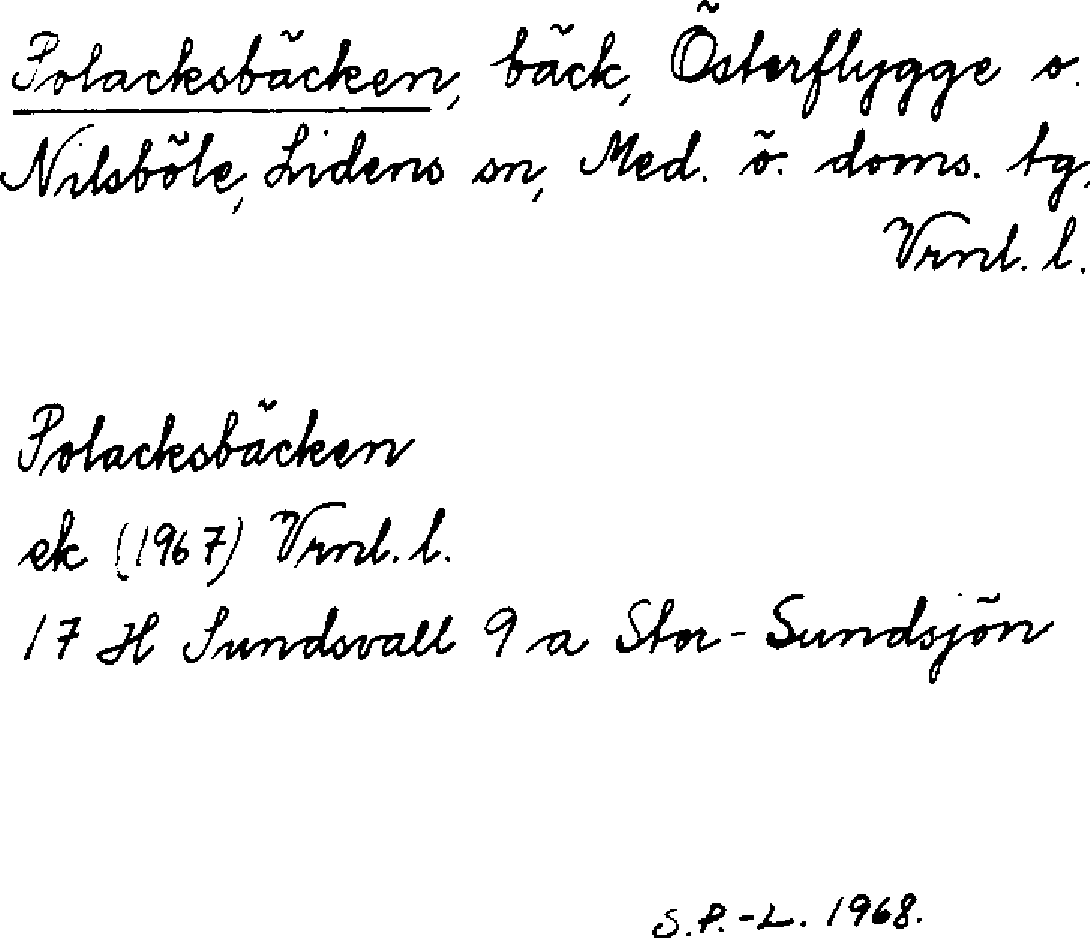 Polacksbäcken, bäck, Österflygge o.
Nilsböle, Lidens sn, Med. ö. doms. tg,
Vrnl. l.
Polacksbäcken
ek (1967) Vrnl. l.
17 H Sundsvall 9 a Stor-Sundsjön
S.P.-L. 1968.